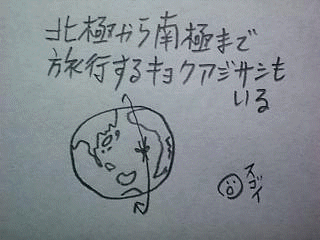 北極から南極まで
旅行するキョクアジサシも
いる
スゴイ